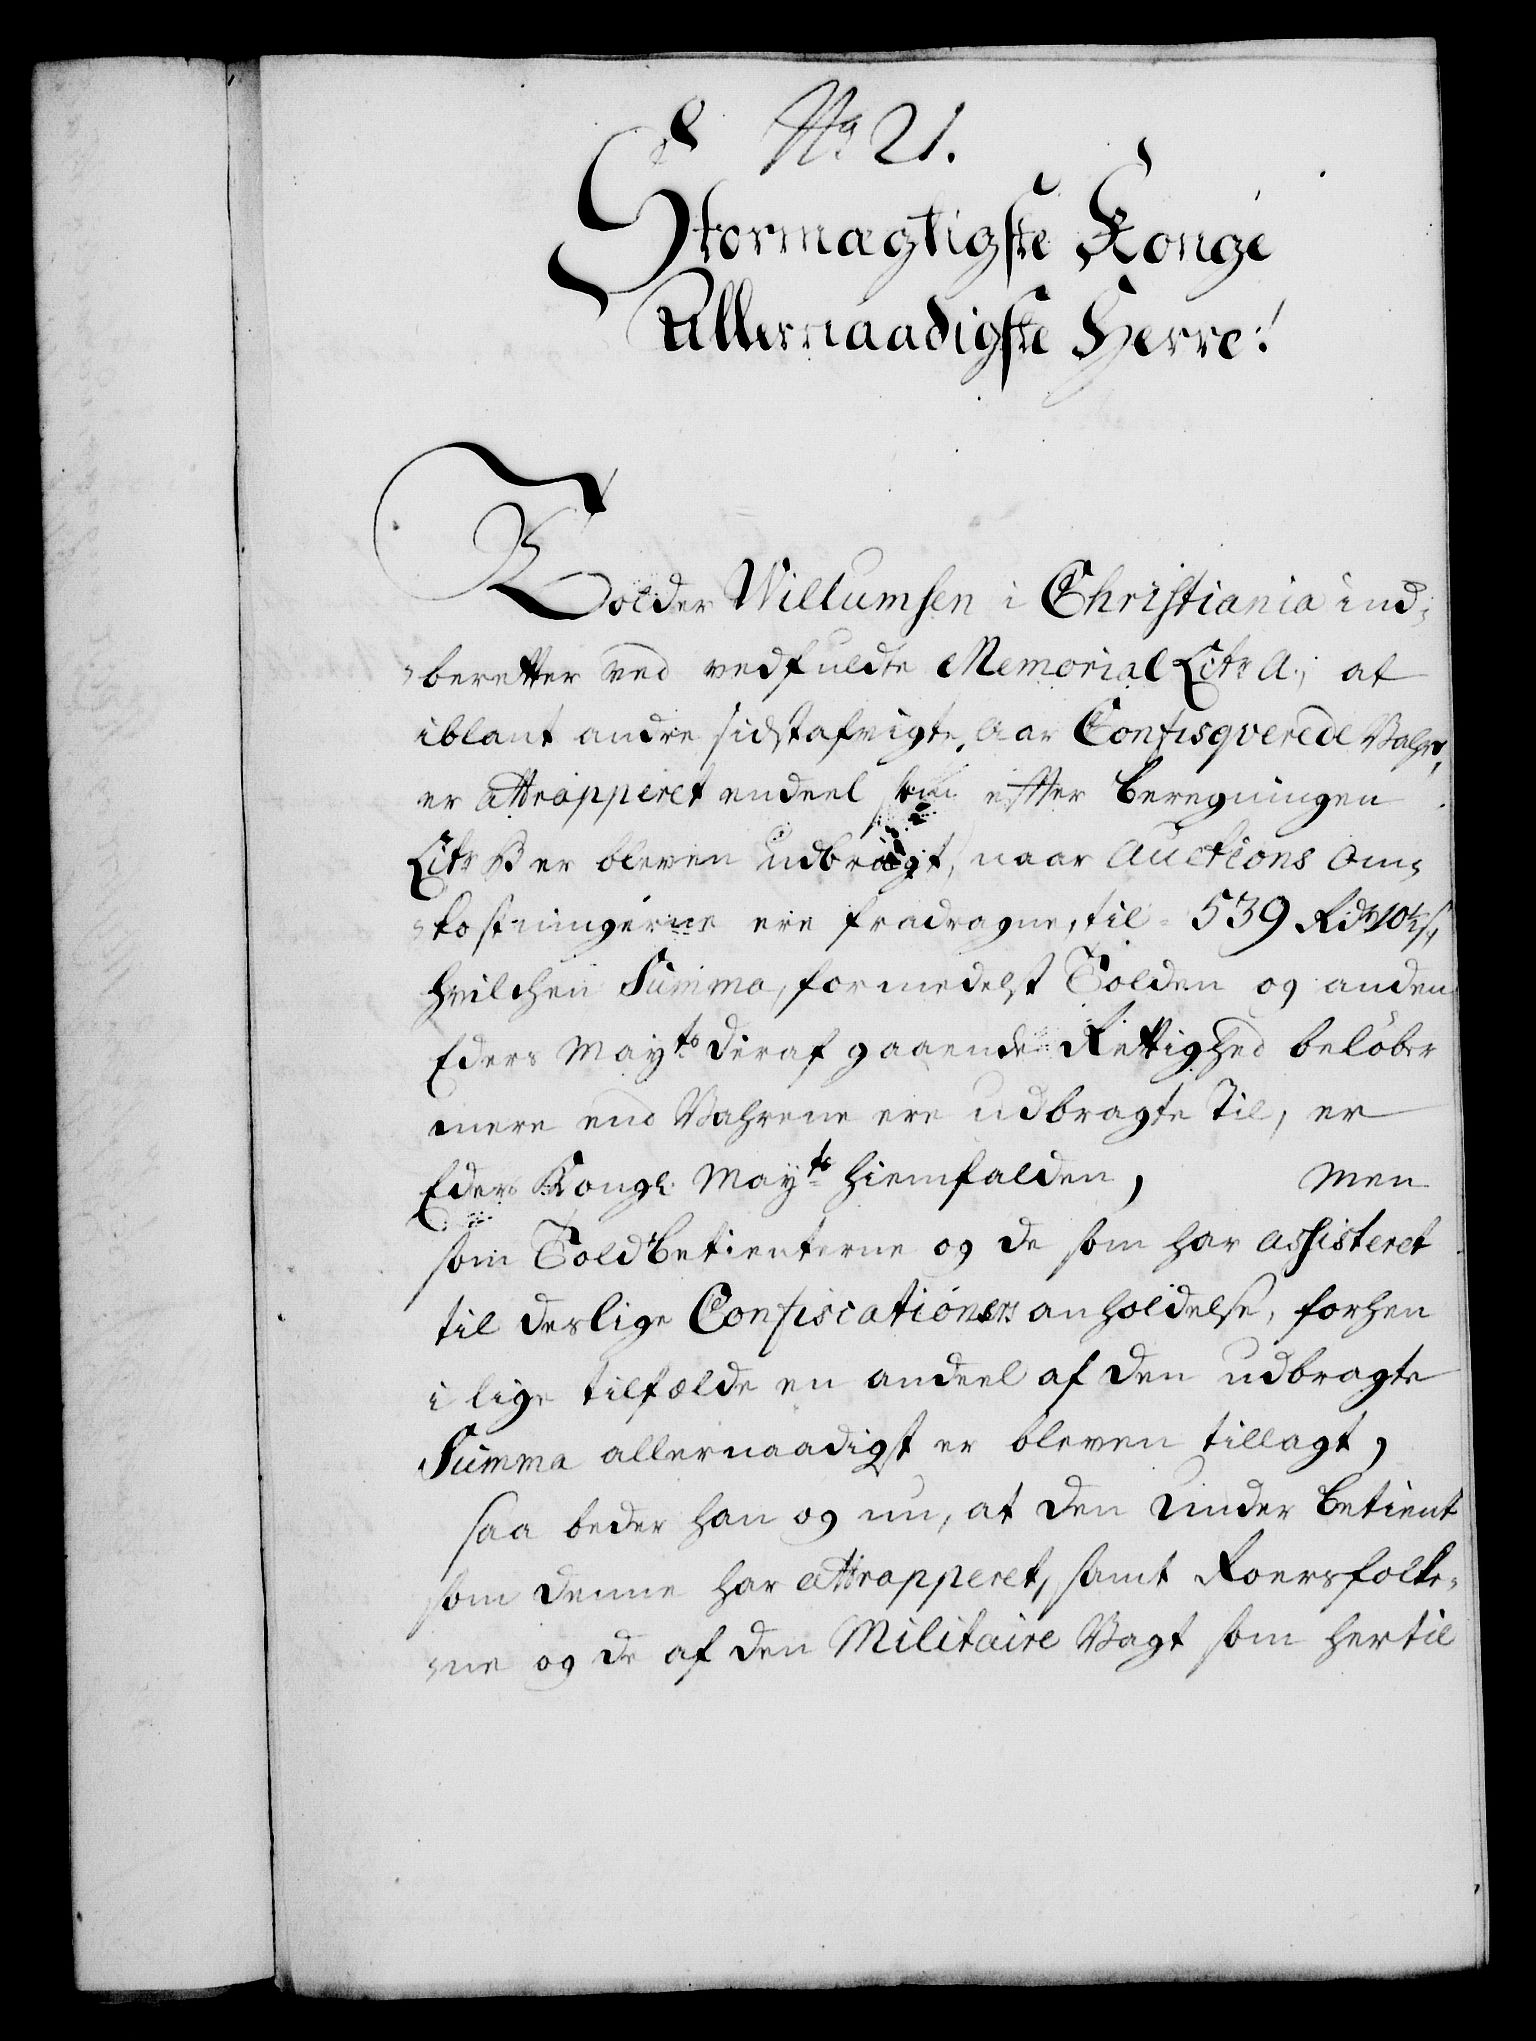 No 21.
Stormægtigste Konge
Allernaadigste Herre!
Tolder Willumsen i Christiania ind-
beretter ved vedfuldte Memorial Litr A., at
iblant andre sidstafvigte Aar Confisqverede Vahre,
er attrapperet endeel som efter Beregningen
Litr B er bleven udbragt, naar Auctions Om-
kostningerne ere fradragne, til 539 Rdr 10½ s,
hvilchen Summa, formedelst Tolden og anden
Eders Mayts deraf gaaende Rettighed beløber
mere end Vahrene ere udbragte til, er
Eders Kongl. Mayts hiemfalden, Men
som Toldbetienterne og de som har assisteret
til deslige Confiscationers anholdelse, forhen
i lige tilfælde en andeel af den udbragte
Summa allernaadigst er bleven tillagt,
saa beder han og nu, at den Under Betient
som denne har attrapperet, samt Roersfolke-
ne og de af den Militaire Vagt som hertil